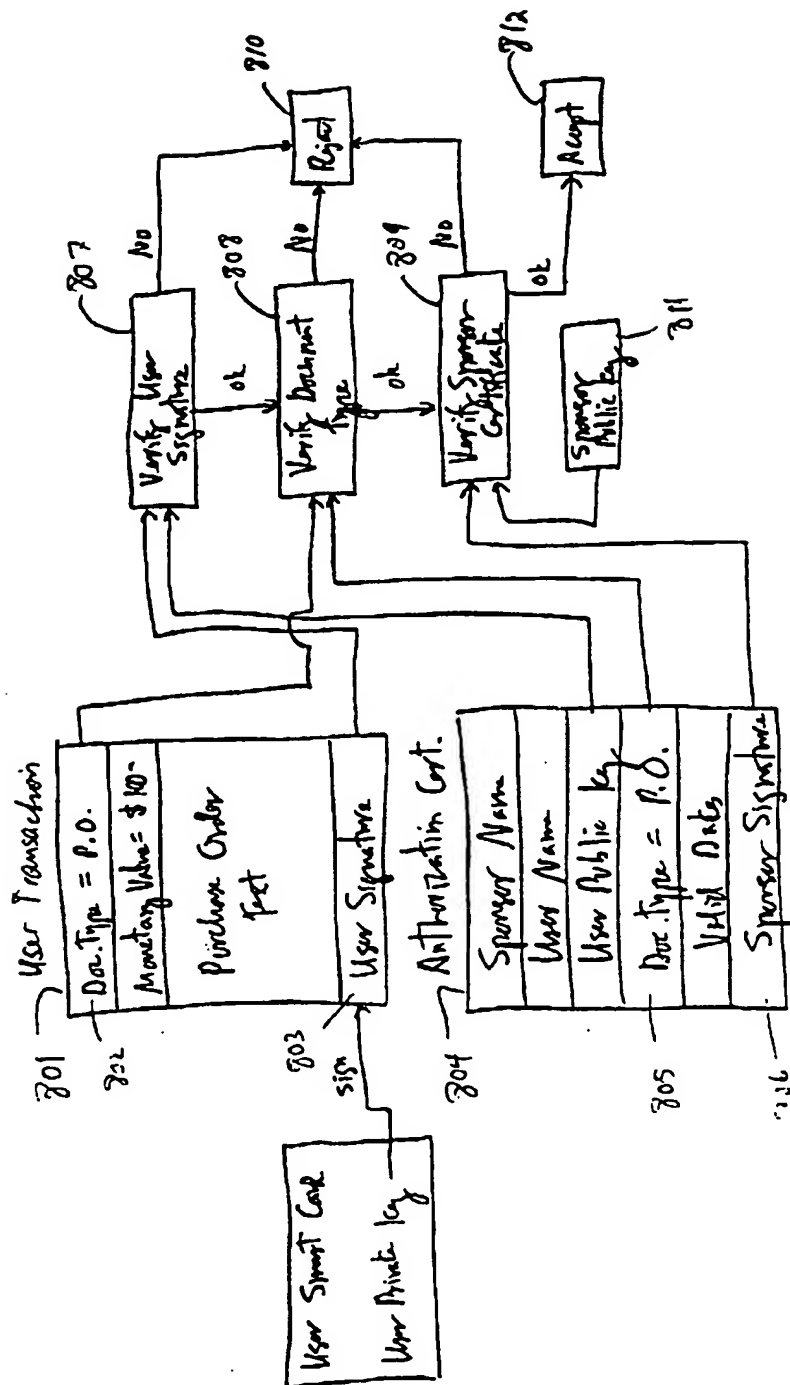 User Smart Card
User Private Key
sign
801
User Transaction
802
Doc. Type = P.O.
Monetary Value = $100-
Purchase Order
Text
803
User Signature
804
Authorization Cert.
Sponsor Name
User Name
User Public Key
805
Doc. Type = P.O.
Valid Dates
Sponsor Signature
807
Verify User
Signature
No
OK
808
Verify Document
Type
No
OK
809
Verify Sponsor
Certificate
No
OK
810
Reject
811
Sponsor
Public Key
812
Accept